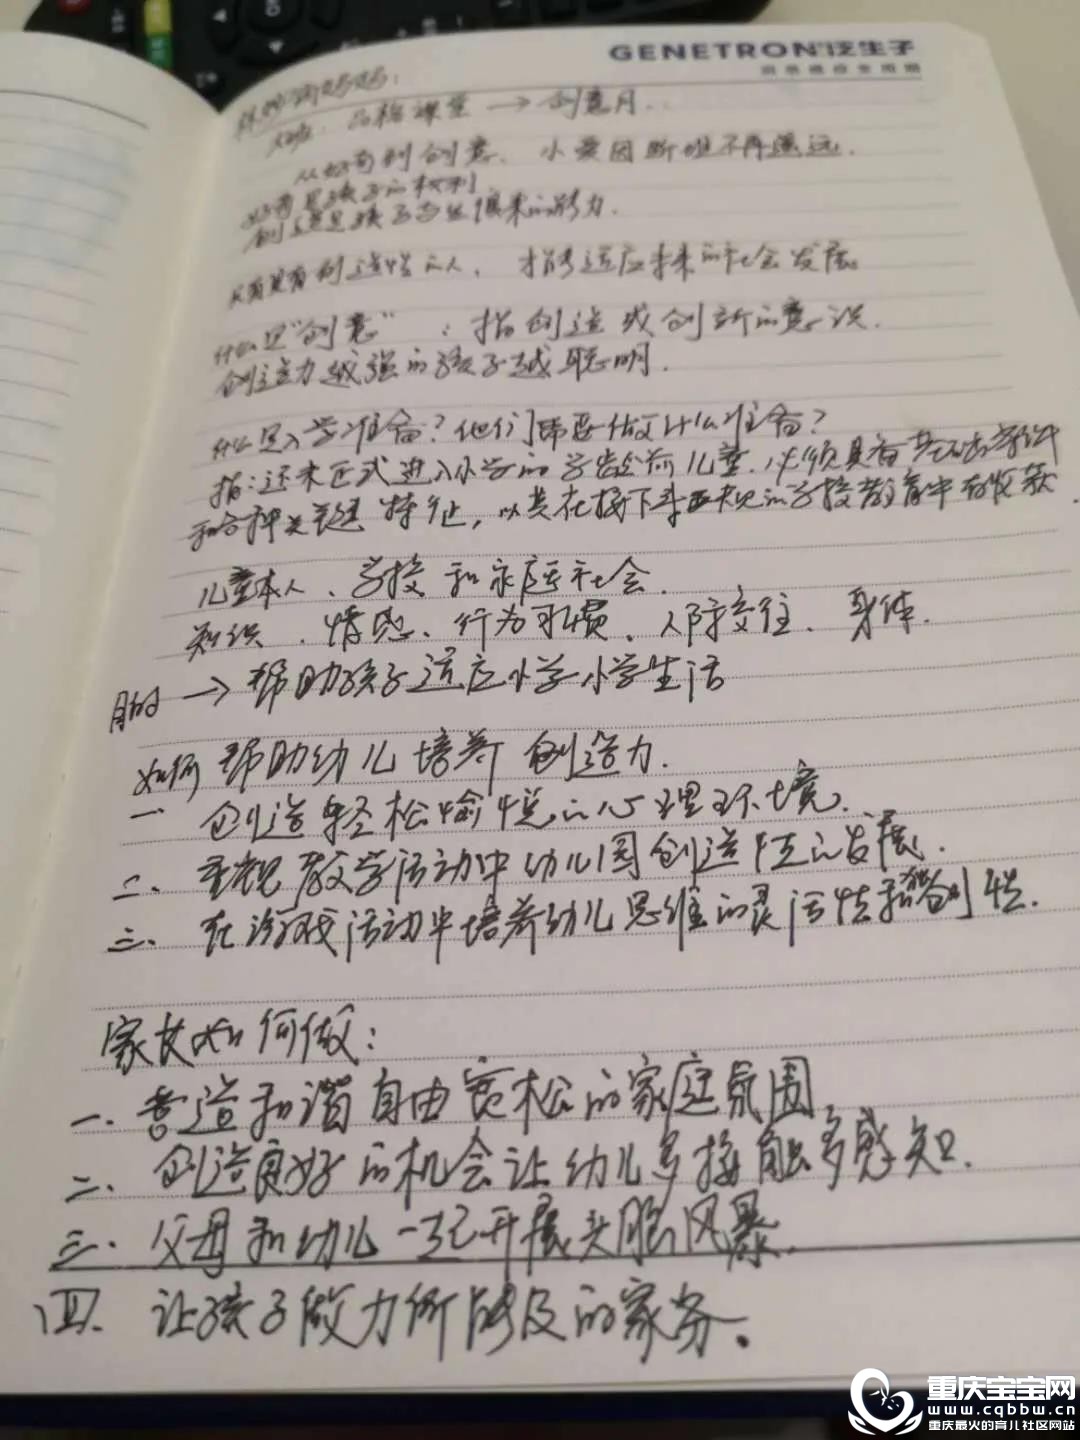 GENETRON®泛生子
品格课堂 → 创意月.
从好奇到创意, 小爱因斯坦不再遥远.
好奇是孩子的权利
创造是孩子与生俱来的能力.
只有具有创造性的人, 才能适应未来的社会发展。
什么是"创意" : 指创造或创新的意识.
创造力越强的孩子越聪明.
什么是入学准备? 他们需要做什么准备?
指:还未正式进入小学的学龄前儿童, 必须具备
和各种关键特征, 以其在接下来正规的学校教育中有收获.
儿童本人、学校和家庭社会.
知识、情感、行为习惯、人际交往、身体.
目的 → 帮助孩子适应小学小学生活
如何帮助幼儿培养创造力.
一 创造轻松愉悦的心理环境.
二、重视教学活动中幼儿园创造性的发展.
三、在游戏活动中培养幼儿思维的灵活性和独创性.
家长如何做:
一. 营造和谐自由宽松的家庭氛围
二、创造良好的机会让幼儿多接触多感知.
三. 父母和幼儿一起开展头脑风暴.
四. 让孩子做力所能及的家务.
重庆宝宝网
www.cqbbw.cn
重庆最火的育儿社区网站